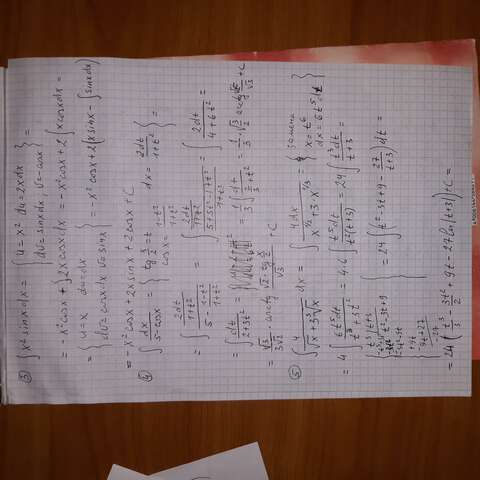 ③ ∫x² sinx dx = { u = x² du = 2xdx
dv = sinxdx, v = -cosx } =
= -x² cosx + ∫2x cosx dx = -x² cosx + 2∫x cosx dx =
= { u = x du = dx
dv = cosx dx v = sinx } = -x² cosx + 2(x sinx - ∫sinx dx)
= -x² cosx + 2x sinx + 2cosx + C
④ ∫ dx/(5-cosx) = { tg x/2 = t
cosx = (1-t²)/(1+t²) dx = 2dt/(1+t²) } =
= ∫ (2dt/(1+t²))/(5 - (1-t²)/(1+t²)) = ∫ 2dt/(4+6t²) =
= ∫ dt/(2+3t²) = = 1/3 ∫ dt/(2/3+t²) =
⑤ ∫ 4/(√x + 3∛x) dx = ∫ 4dx/(x^(1/2) + 3·x^(1/3)) = { замена
x = t⁶
dx = 6t⁵ dt }
= 4∫ 6t⁵dt/(t³+3t²) = 4·6 ∫ t⁵dt/(t²(t+3)) = 24∫ t³dt/(t+3) =
= 24 ∫(t² - 3t + 9 - 27/(t+3)) dt =
= 24 (t³/3 - 3t²/2 + 9t - 27 ln(t+3)) + C =